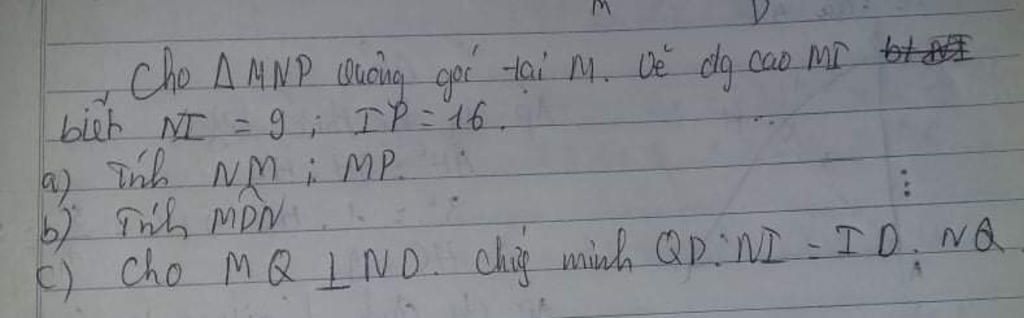 M D
Cho △MNP vuông góc tại M. Vẽ đg cao MI
biết NI = 9 ; IP = 16.
a) Tính NM ; MP.
b) Tính MDN
c) Cho MQ ⊥ ND. Chứg minh QD.NI = ID.NQ